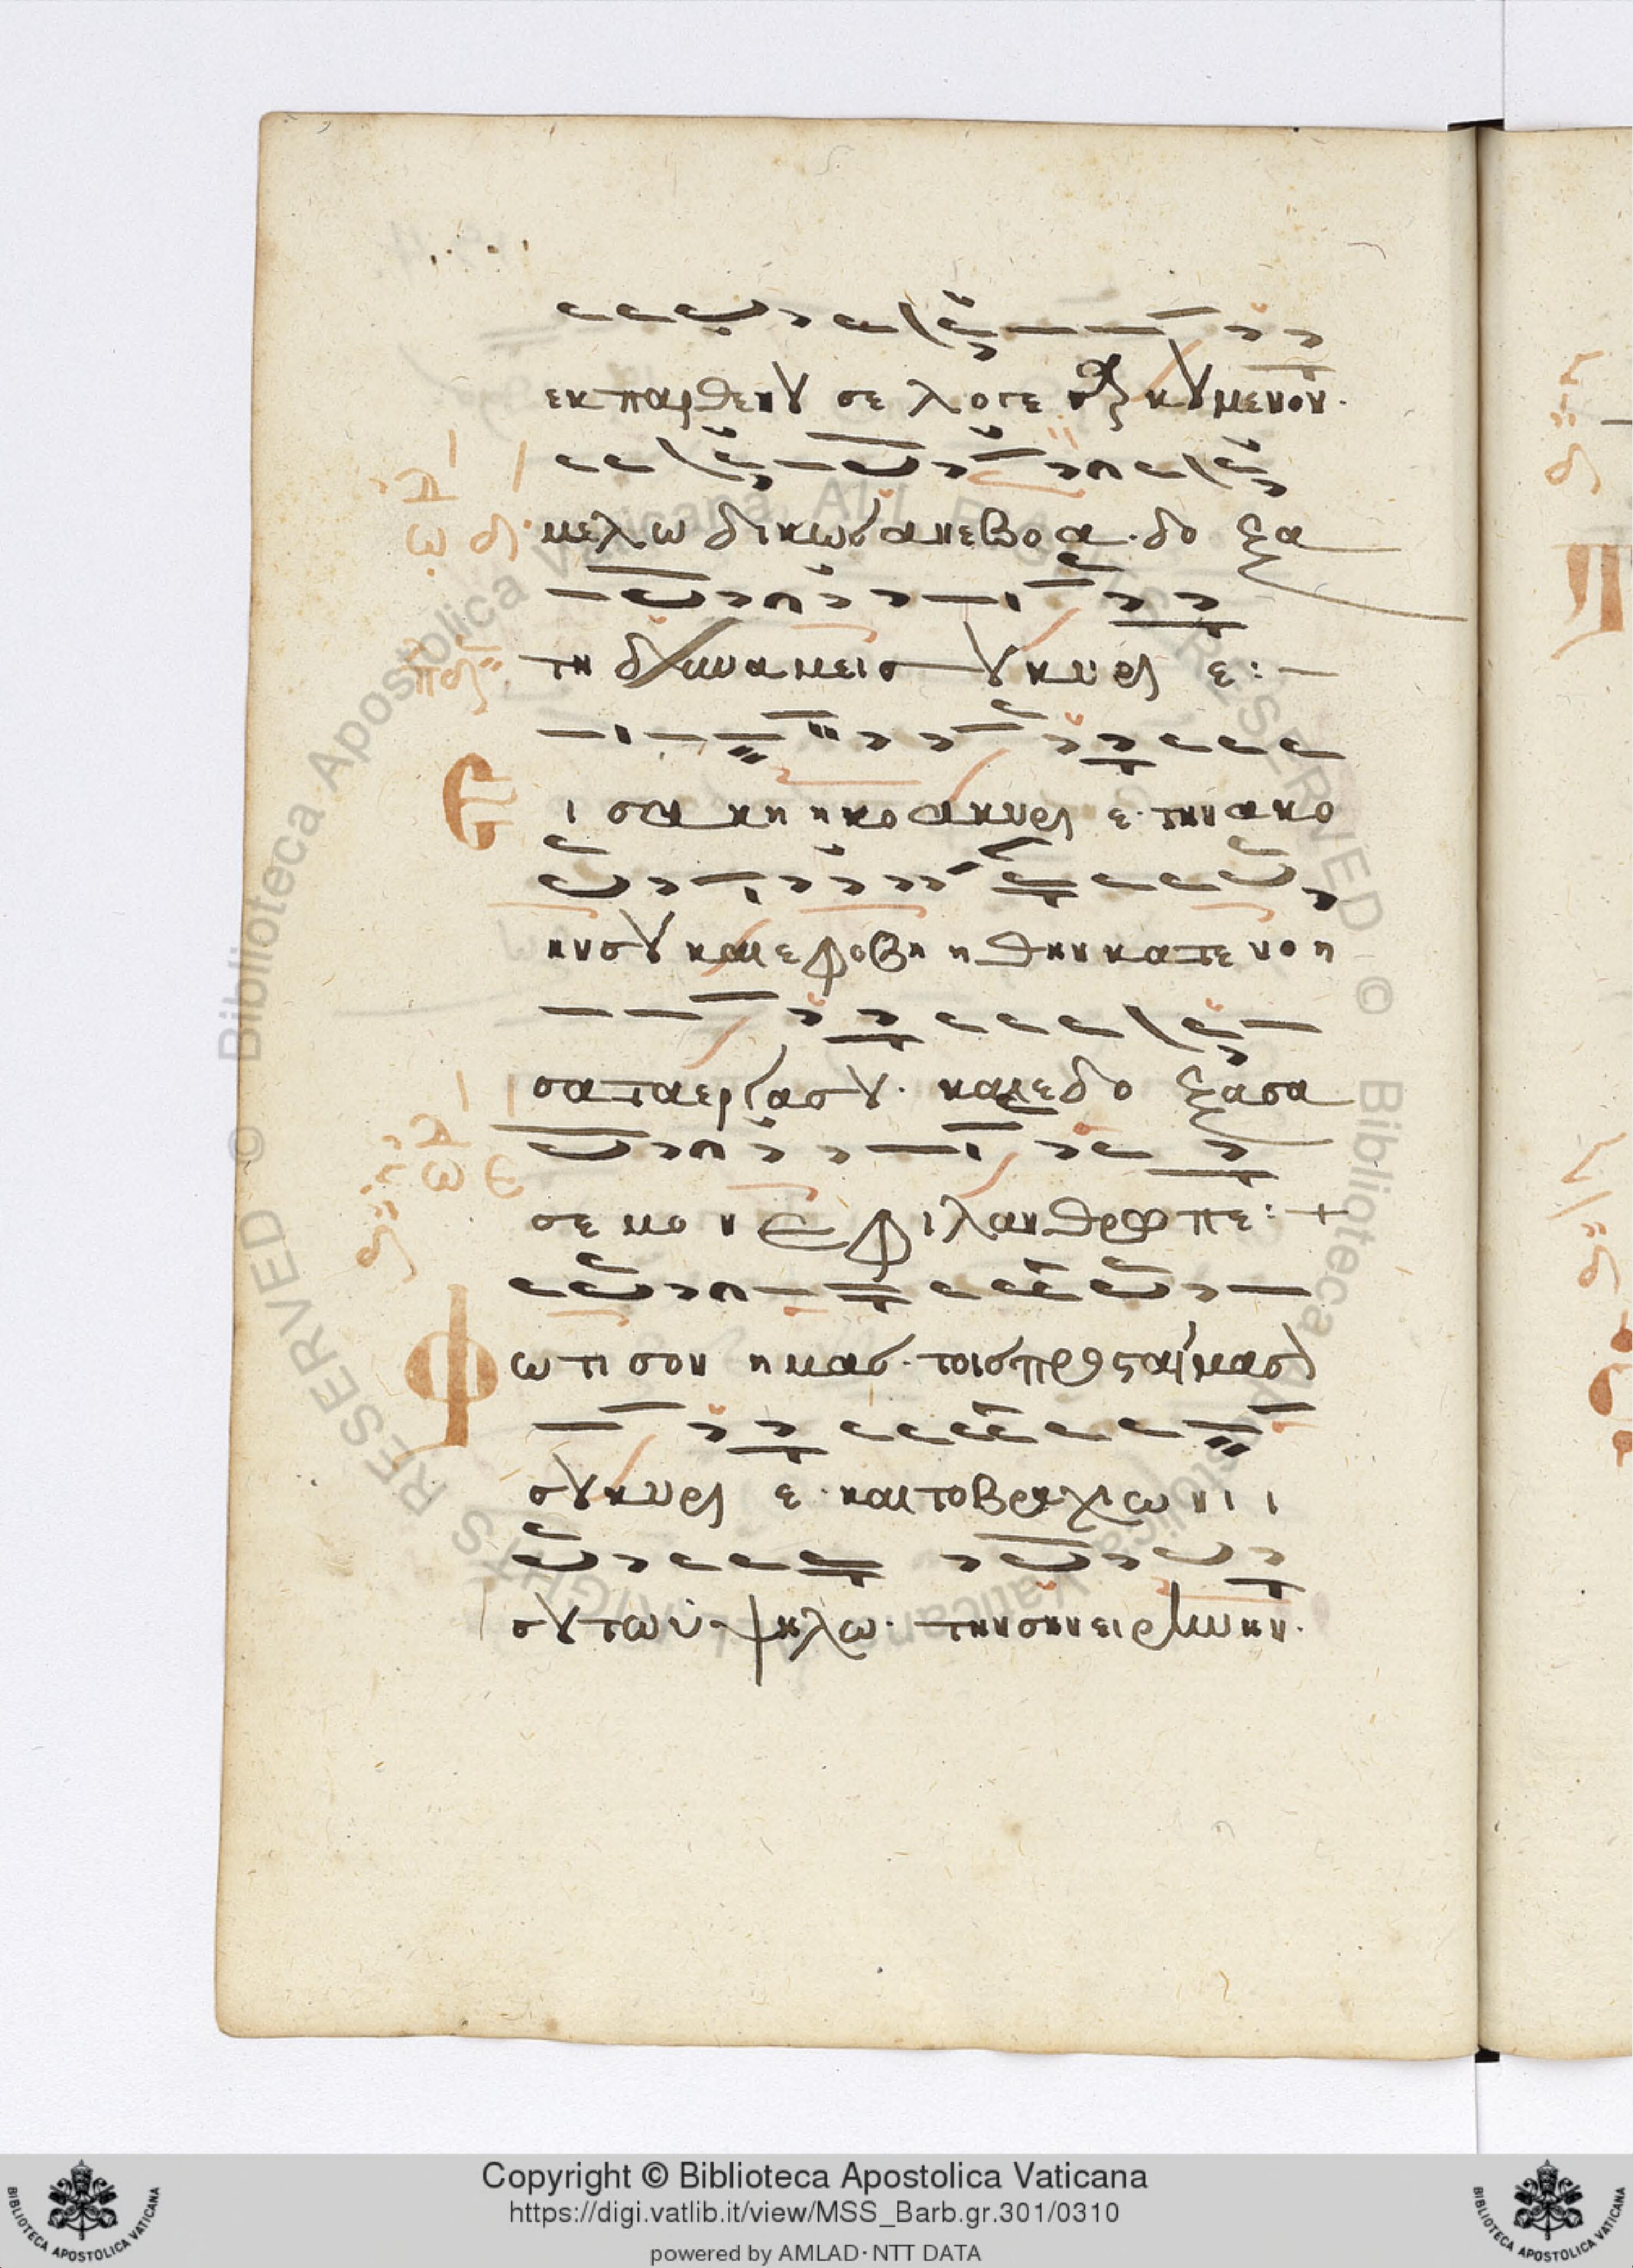 εκ παρθενου σε λογε σαρκουμενον·
μελωδικως ανεβοα· δοξα
τη δυναμει σου κυριε:–
Εισακηηκοα κυριε· την ακο
ην σου και εφοβηηθην κατενοη
σα τα εργα σου· και εδοξασα
σε μονε φιλανθρωπε:+
Φωτισον ημας· τοις προσταγμασι
σου κυριε· και τω βραχιωνιι
σου τω υψηλω· την σην ειρηνην·
Copyright © Biblioteca Apostolica Vaticana
https://digi.vatlib.it/view/MSS_Barb.gr.301/0310
powered by AMLAD·NTT DATA